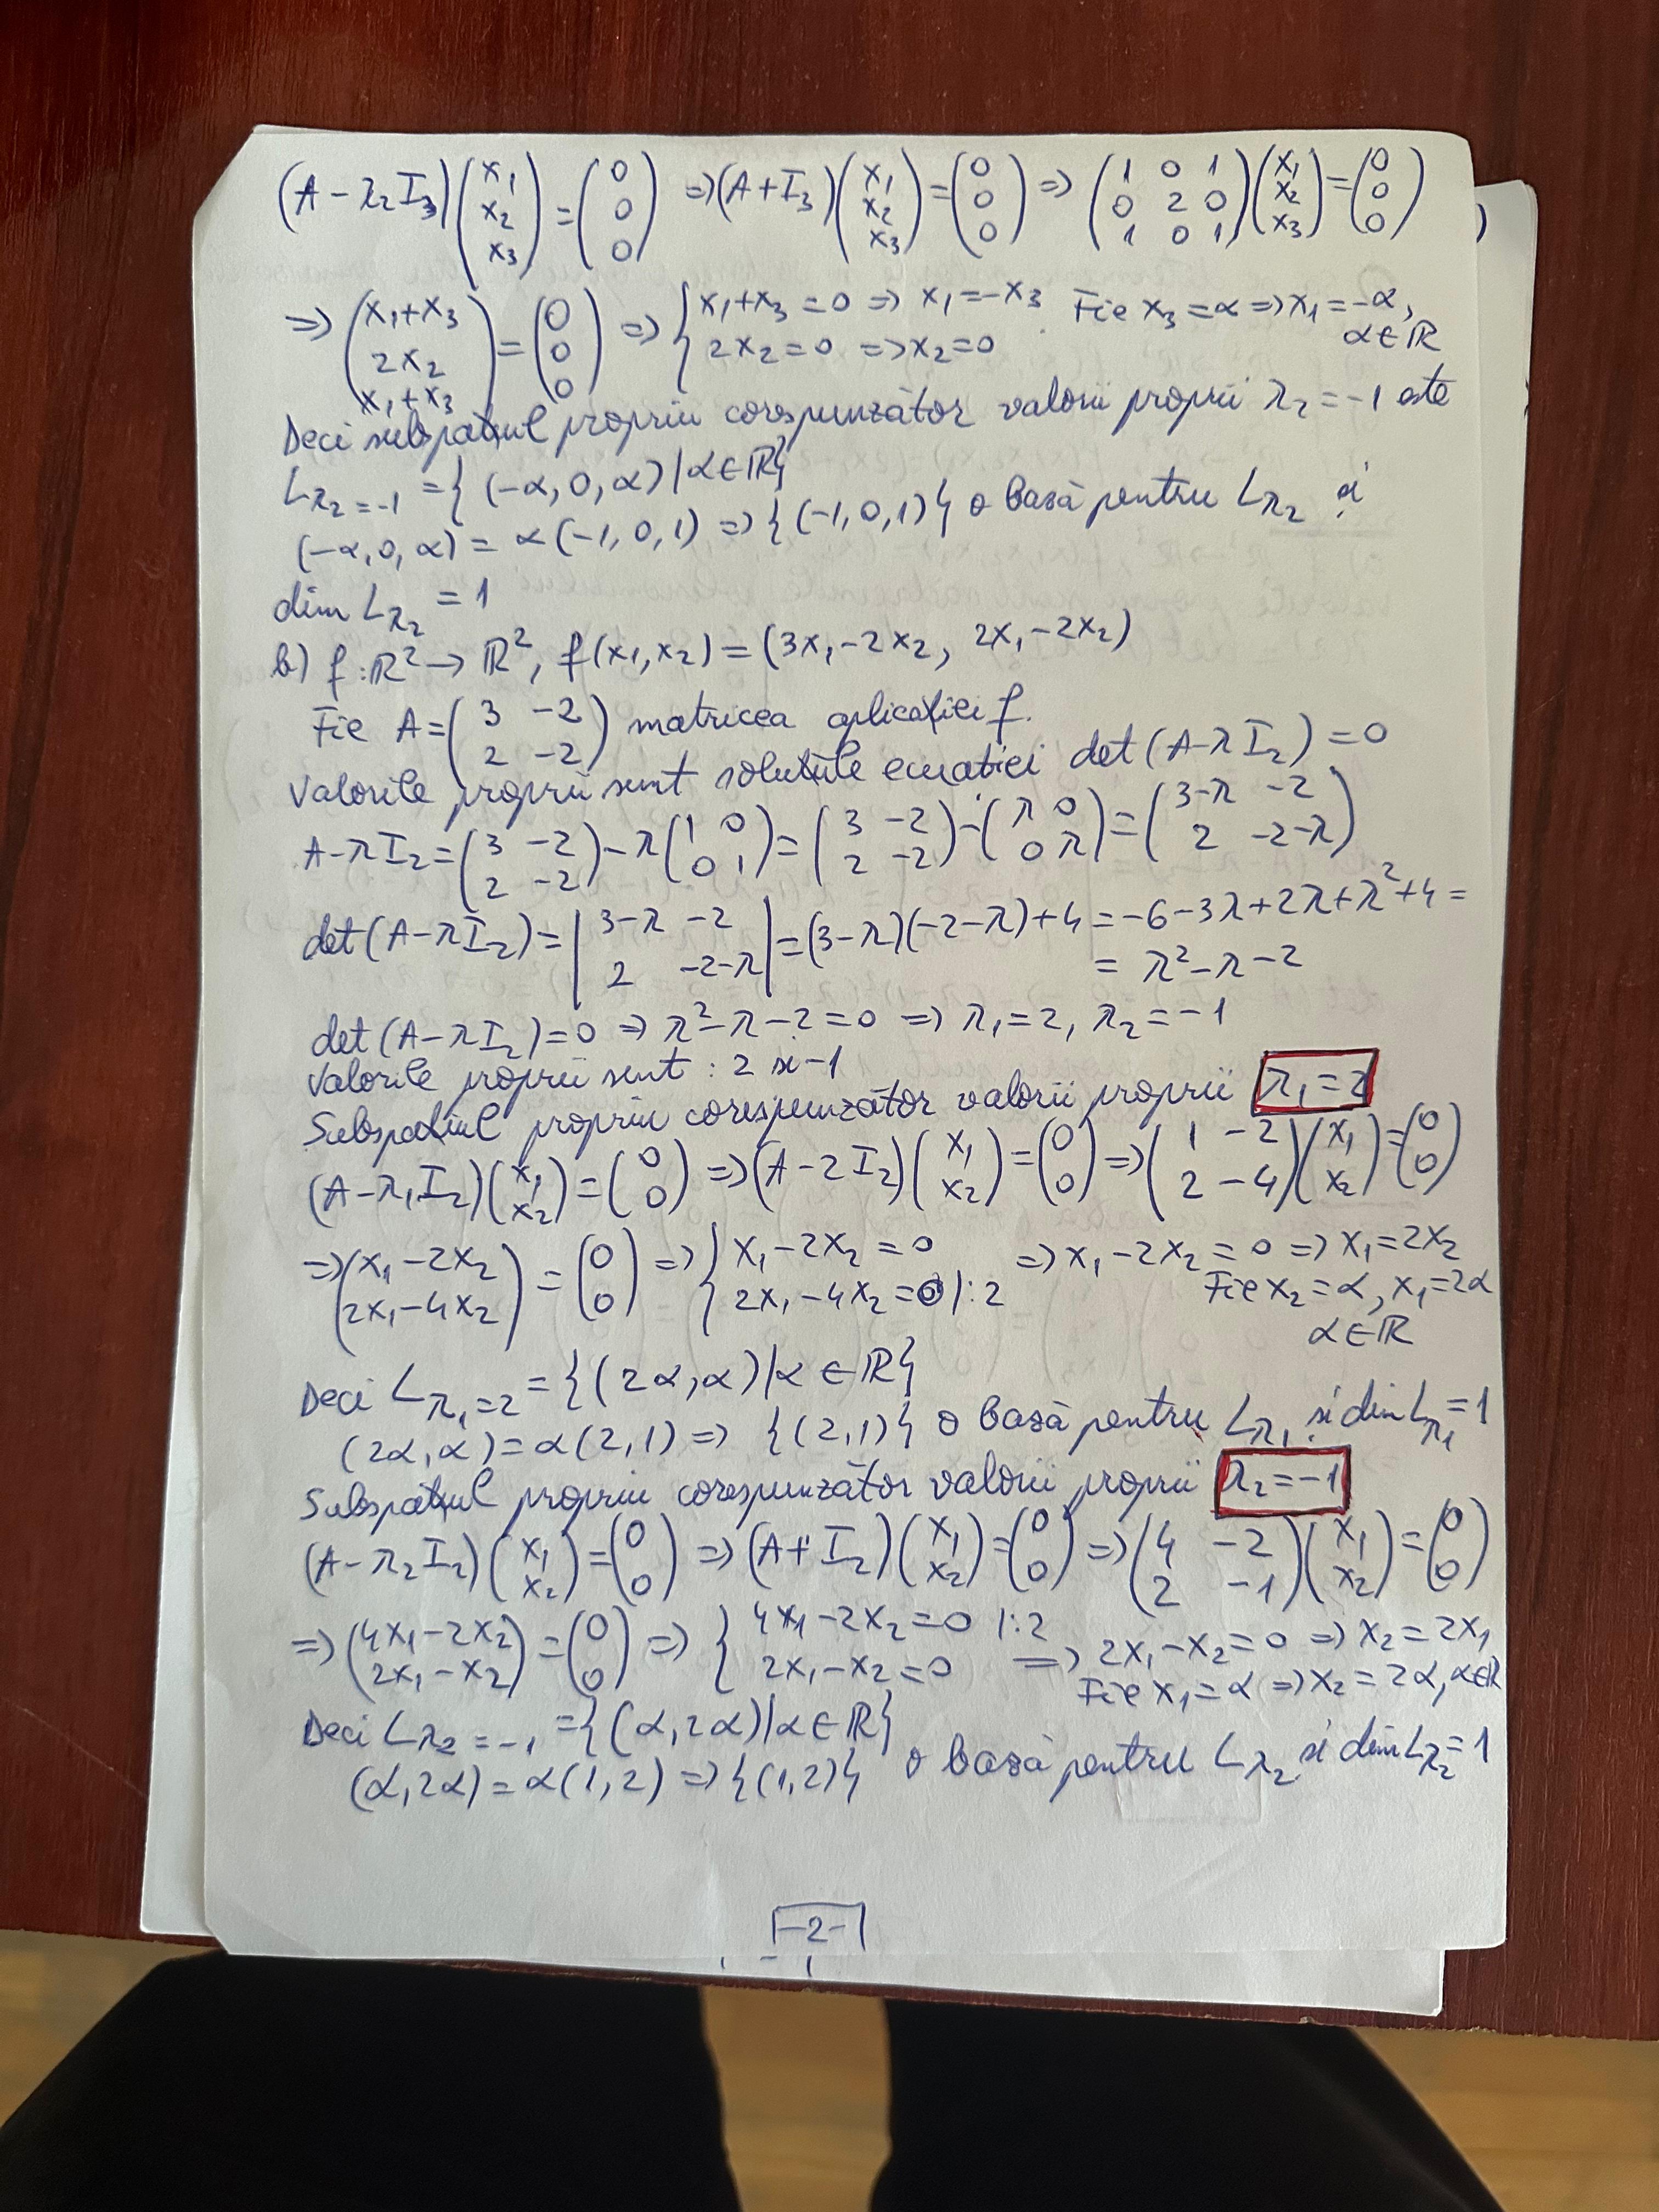 (A-λ₂I₃)(x₁ x₂ x₃) = (0 0 0) => (A+I₃)(x₁ x₂ x₃) = (0 0 0) => (1 0 1; 0 2 0; 1 0 1)(x₁ x₂ x₃) = (0 0 0)
=> (x₁+x₃; 2x₂; x₁+x₃) = (0 0 0) => { x₁+x₃=0 => x₁=-x₃ Fie x₃=α => x₁=-α,
2x₂=0 => x₂=0 α∈ℝ
Deci subspațiul propriu corespunzător valorii proprii λ₂=-1 este
L_{λ₂=-1} = {(-α, 0, α) | α∈ℝ}
(-α, 0, α) = α(-1, 0, 1) => {(-1, 0, 1)} o bază pentru L_{λ₂} și
dim L_{λ₂} = 1
b) f: ℝ² → ℝ², f(x₁, x₂) = (3x₁-2x₂, 2x₁-2x₂)
Fie A = (3 -2; 2 -2) matricea aplicației f.
Valorile proprii sunt soluțiile ecuației det(A-λI₂) = 0
A-λI₂ = (3 -2; 2 -2) - λ(1 0; 0 1) = (3 -2; 2 -2) - (λ 0; 0 λ) = (3-λ -2; 2 -2-λ)
det(A-λI₂) = |3-λ -2; 2 -2-λ| = (3-λ)(-2-λ)+4 = -6-3λ+2λ+λ²+4 =
= λ²-λ-2
det(A-λI₂)=0 => λ²-λ-2=0 => λ₁=2, λ₂=-1
Valorile proprii sunt: 2 și -1
Subspațiul propriu corespunzător valorii proprii λ₁=2
(A-λ₁I₂)(x₁ x₂) = (0 0) => (A-2I₂)(x₁ x₂) = (0 0) => (1 -2; 2 -4)(x₁ x₂) = (0 0)
=> (x₁-2x₂; 2x₁-4x₂) = (0 0) => { x₁-2x₂=0 => x₁-2x₂=0 => x₁=2x₂
2x₁-4x₂=0 |:2 Fie x₂=α, x₁=2α
α∈ℝ
Deci L_{λ₁=2} = {(2α, α) | α∈ℝ}
(2α, α) = α(2, 1) => {(2, 1)} o bază pentru L_{λ₁} și dim L_{λ₁}=1
Subspațiul propriu corespunzător valorii proprii λ₂=-1
(A-λ₂I₂)(x₁ x₂) = (0 0) => (A+I₂)(x₁ x₂) = (0 0) => (4 -2; 2 -1)(x₁ x₂) = (0 0)
=> (4x₁-2x₂; 2x₁-x₂) = (0 0) => { 4x₁-2x₂=0 |:2
2x₁-x₂=0 => 2x₁-x₂=0 => x₂=2x₁
Fie x₁=α => x₂=2α, α∈ℝ
Deci L_{λ₂=-1} = {(α, 2α) | α∈ℝ}
(α, 2α) = α(1, 2) => {(1, 2)} o bază pentru L_{λ₂} și dim L_{λ₂}=1
-2-